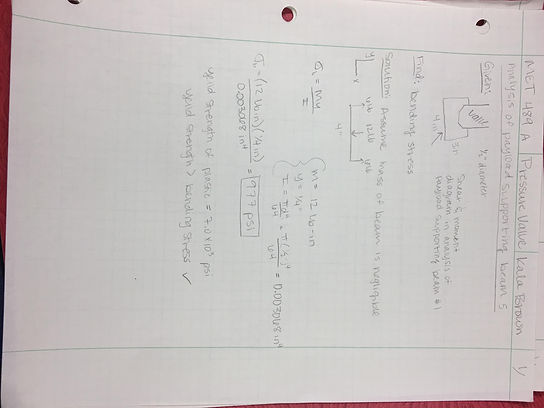 MET 489 A | Pressure Valve | Kala Brown 1/
Analysis of payload supporting beam 5
Given:
valve
1/2" diameter
3in
4in
Shear & moment
diagram in analysis of
payload supporting beam #1
Find: bending stress
Solution: Assume mass of beam is negligible
y
x
12lb
4"
σ₁ = My/I
m = 12 lb-in
y = 1/4"
I = πd⁴/64 = π(1/2)⁴/64 = 0.003068 in⁴
σ₁ = (12 lb·in)(1/4 in)/0.003068 in⁴ = 977 psi
yield strength of plastic = 7.0 x 10³ psi
yield strength > bending stress ✓